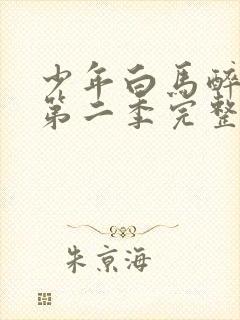 少年白馬醉
第二季完整
朱京海